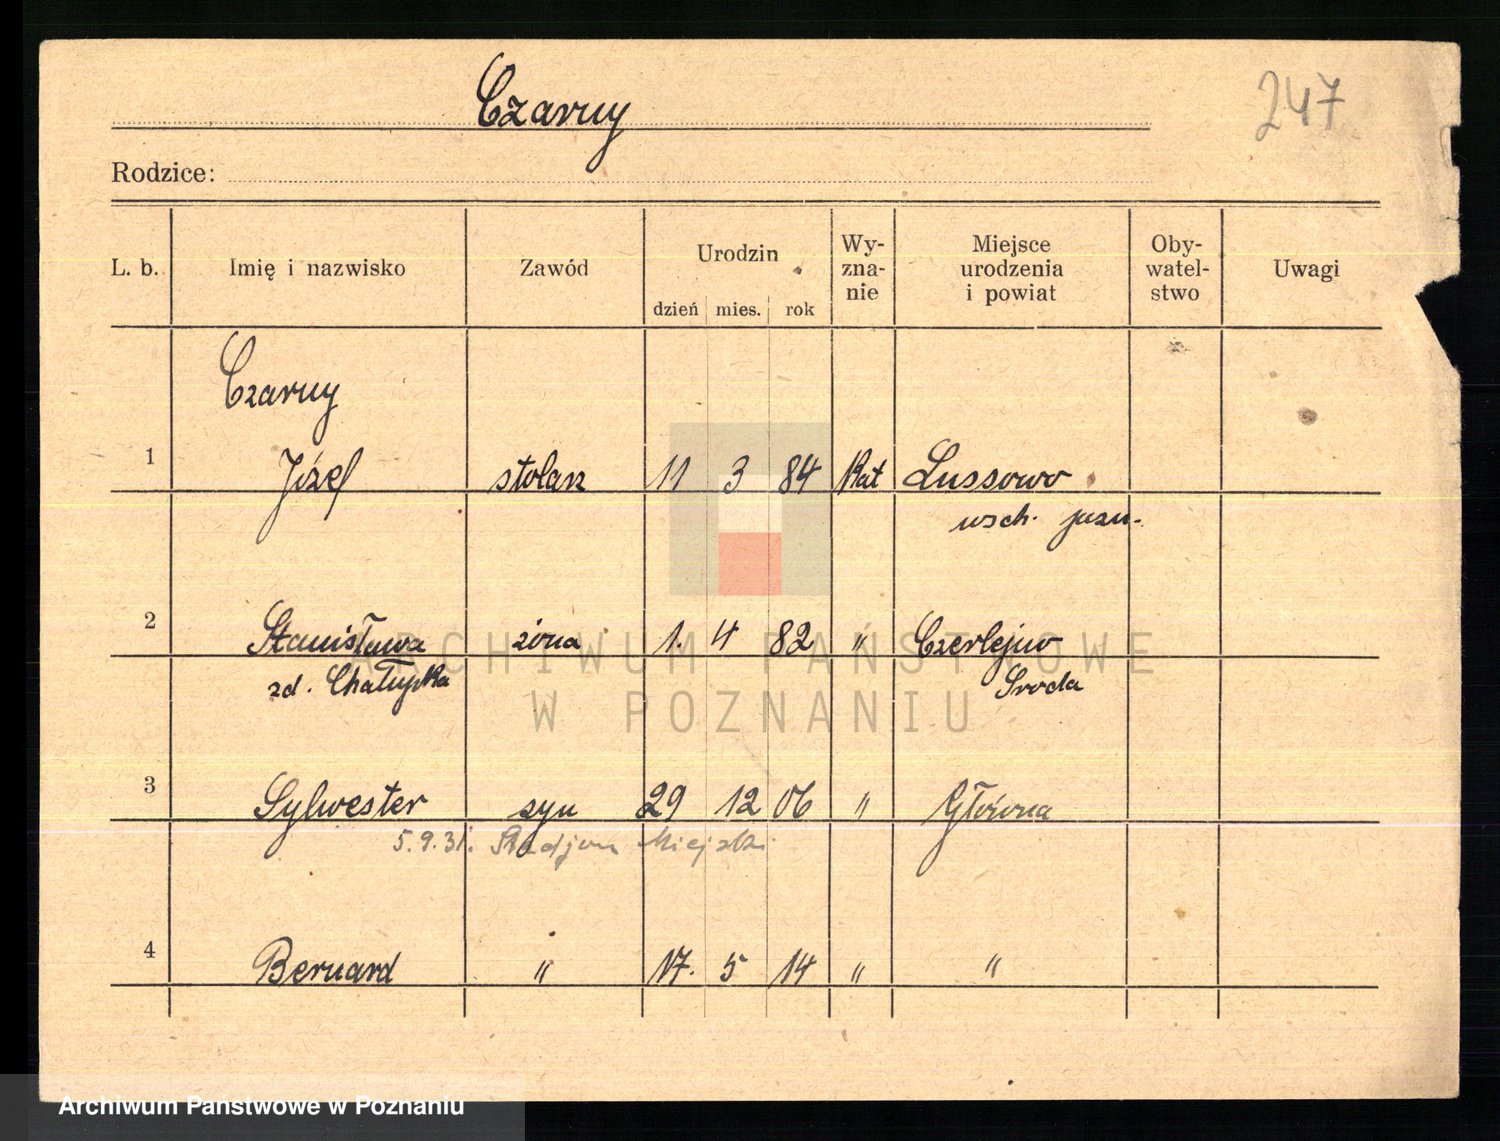 Czarny
247
Rodzice:
L. b. Imię i nazwisko Zawód Urodzin dzień mies. rok Wy-zna-nie Miejsce urodzenia i powiat Oby-watel-stwo Uwagi
Czarny
1 Józef stolarz 11 3 84 Kat Lussowo
wsch.
2 Stanisława żona 1. 4 82 " Czerlejno
zd. Chałupka Sroda
ARCHIWUM PAŃSTWOWE
W POZNANIU
3 Sylwester syn 29 12 06 " Główna
5.9.31. Stadjon Miejski
4 Bernard " 17. 5 14 " "
Archiwum Państwowe w Poznaniu